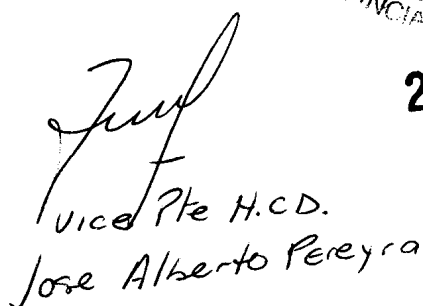 2
Vice Pte H.C.D.
Jose Alberto Pereyra